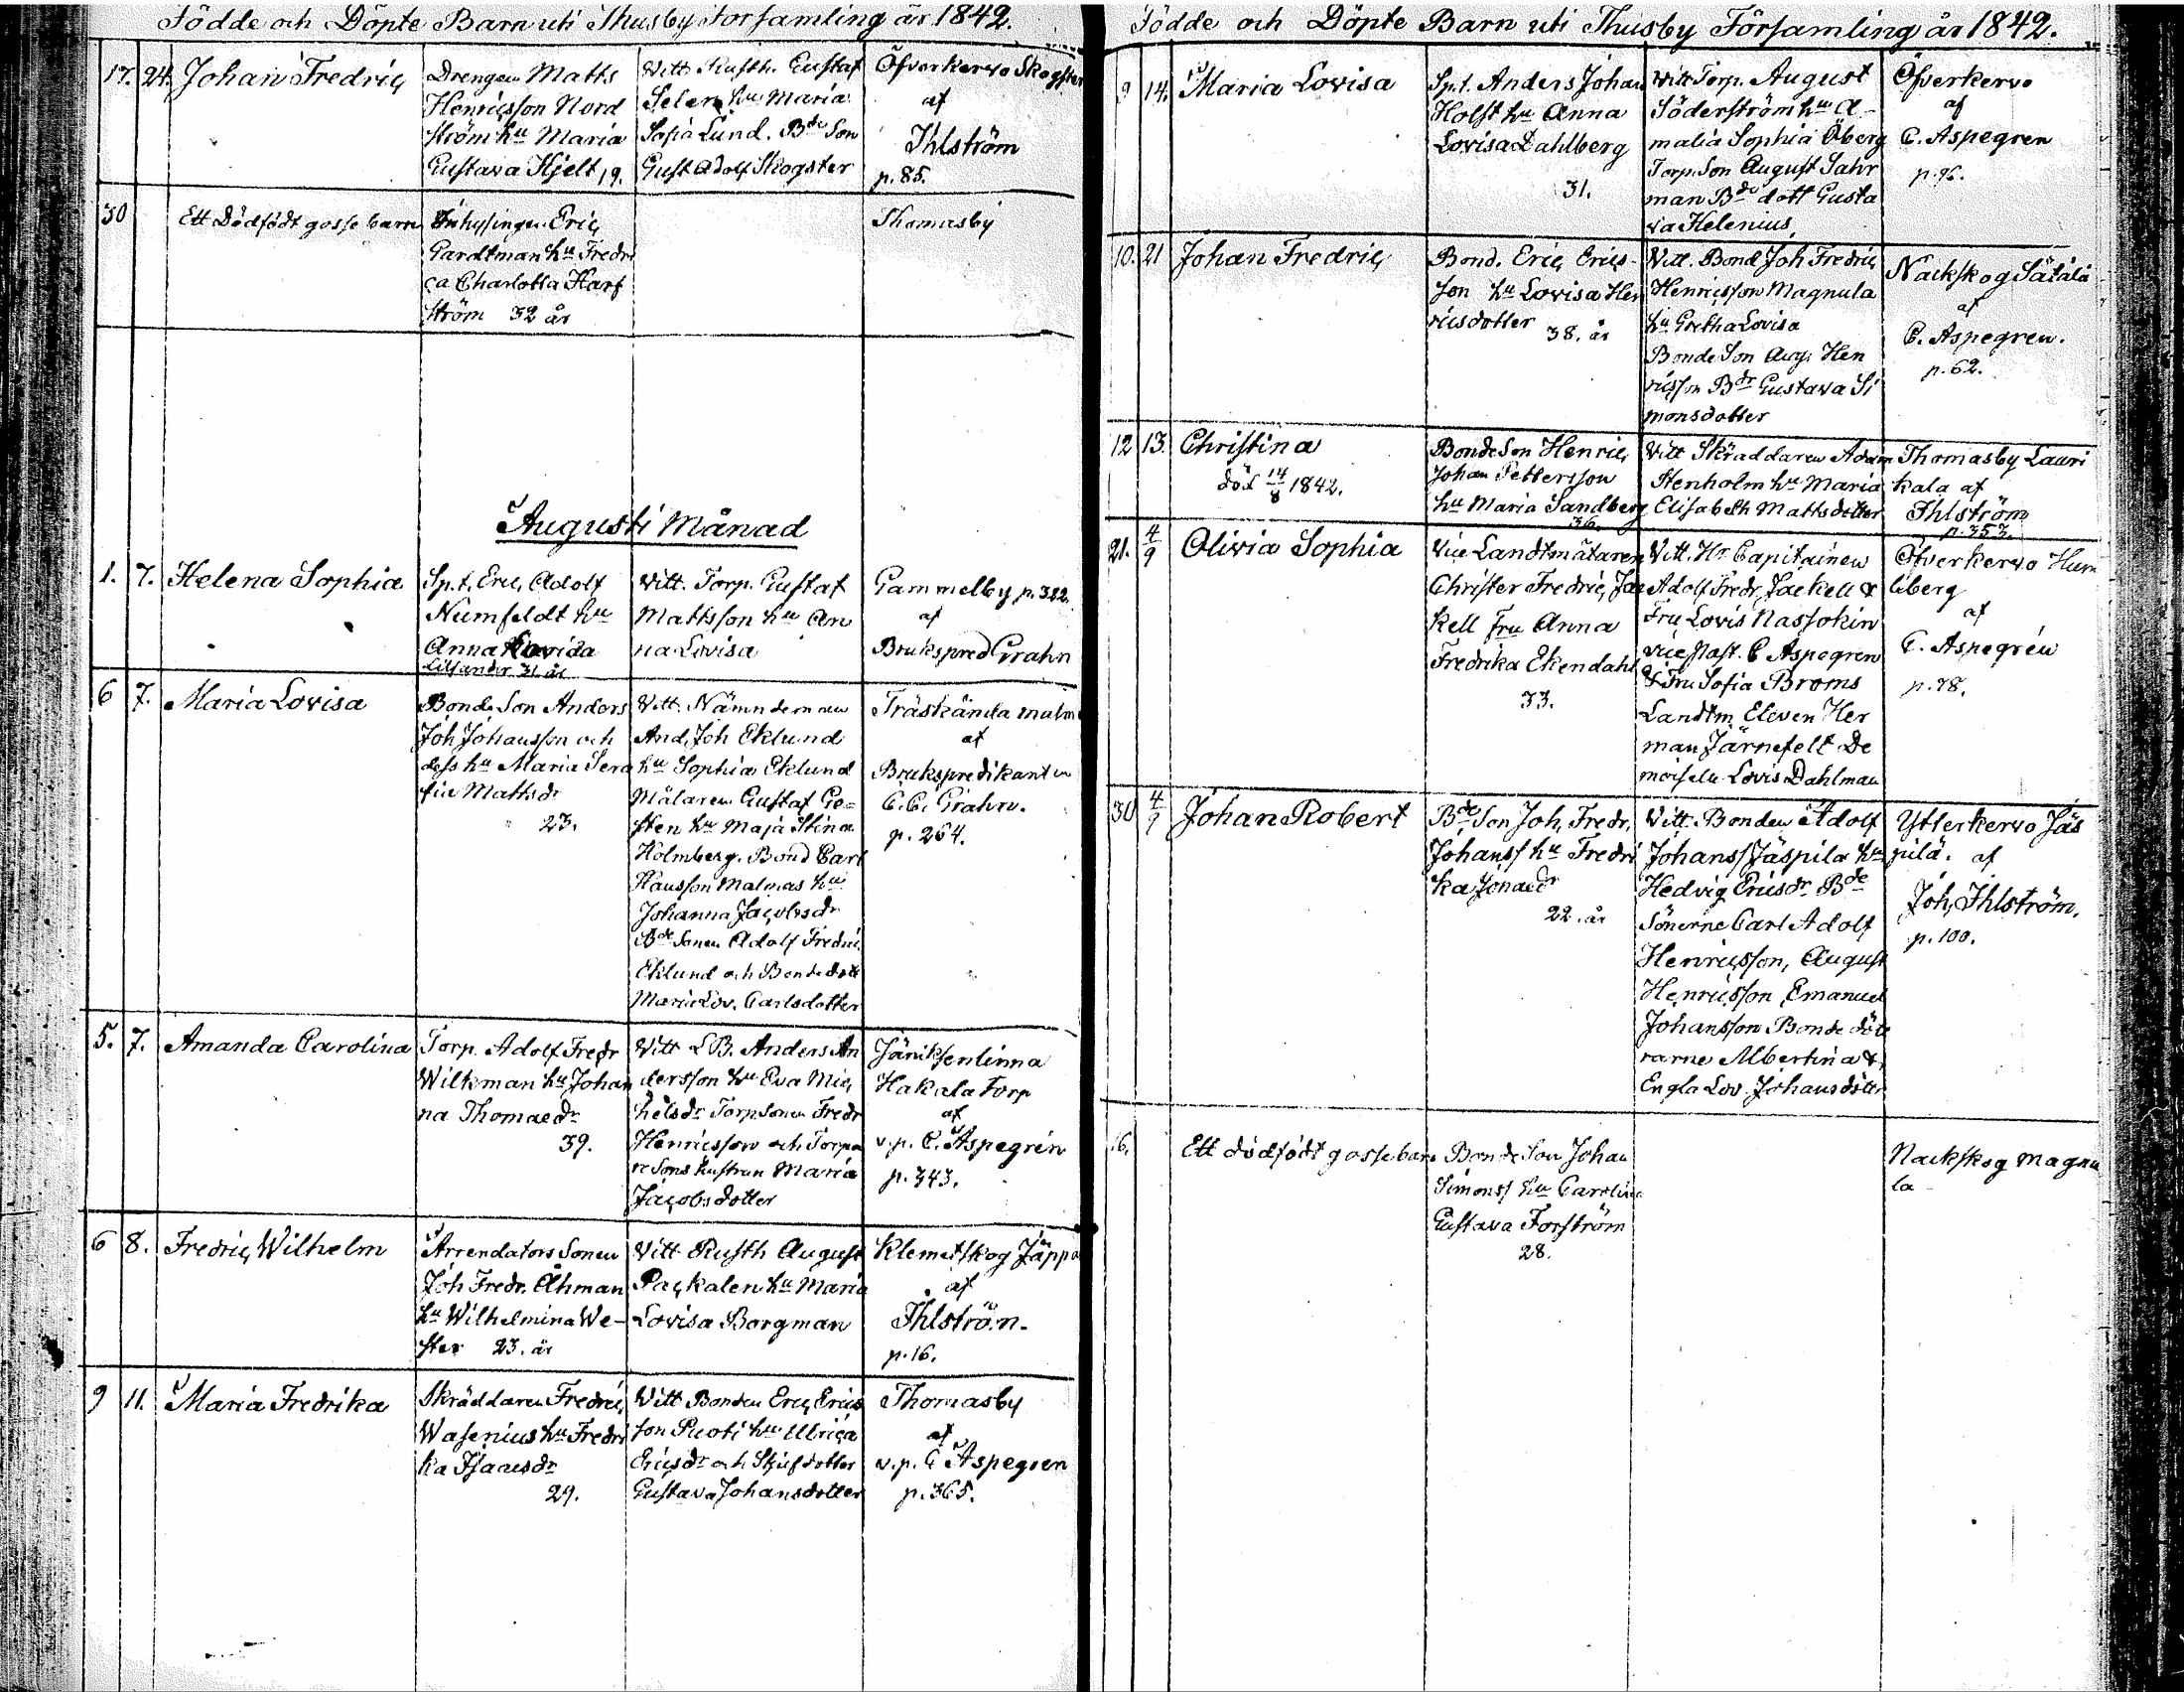 Födde och Döpte Barn uti Thusby Forsamling år 1842.
17. 24. Johan Fredric
Drengen Matts
Henricsson Nord
ström hu Maria
Gustava Hjelt 19.
Vitt. Rusth. Gustaf
Selen hu Maria
Sofia Lund. Bde Son
Gust Adolf Skogster
Öfverkervo Skogster
af
Ihlström
p. 85.
30
Ett Dödfödt gosse barn
Inhysingen Eric
Gardtman hu Fredri
ca Charlotta Harf
ström 32 år
Thomasby
Augusti Månad
1. 7. Helena Sophia
Sp.t. Eric Adolf
Numfeldt hu
Anna Lovisa
31 år
Vitt. Torp. Gustaf
Mattsson hu An
na Lovisa
Gammelby p. 322
af
Brukspred Grahn
6 7. Maria Lovisa
Bonde Son Anders
Joh Johansson och
dess hu Maria Sera
fia Mattsdr
23.
Vitt. Nämndeman
And. Joh Eklund
hu Sophia Eklund
Målaren Gustaf Ge=
sten hu Maja Stina
Holmberg. Bond Carl
Hansson Malmas hu
Johanna Jacobsdr
Bde Sonen Adolf Fredric
Eklund och Bonde dott
Maria Lov. Carlsdotter
Träskända malm
af
Brukspredikanten
C. C. Grahn.
p. 264.
5. 7. Amanda Carolina
Torp. Adolf Fredr
Wilkman hu Johan
na Thomaedr
39.
Vitt L.B. Anders An
dersson hu Eva Mic
helsdr Torp Sonen Fredr
Henricsson och Torpa
re Sons hustrun Maria
Jacobsdotter
Jäniksenlinna
Hakala Torp
af
v. p. C. Aspegrén
p. 343.
6 8. Fredric Wilhelm
Arrendators Sonen
Joh Fredr. Åhman
hu Wilhelmina We-
ster 23. år
Vitt Rusth August
Packalen hu Maria
Lovisa Borgman
Klemetskog Jäppo
af
Ihlström.
p. 16.
9 11. Maria Fredrika
Skräddaren Fredric
Wasenius hu Fredri
ka Isaacsdr
29.
Vitt Bonden Eric Erics
son Puoti hu Ulrica
Ericsdr och Stjufdotter
Gustava Johansdotter
Thomasby
af
v. p. C Aspegren
p. 365.
Födde och Döpte Barn uti Thusby Församling år 1842.
9 14. Maria Lovisa
Sp.t. Anders Johan
Holst hu Anna
Lovisa Dahlberg
31.
Vitt Torp. August
Söderström hu A-
malia Sophia Öberg
Torp. Son August Sahr
man Bde dott Gusta
va Helenius,
Öfverkervo
af
C. Aspegren
p. 96.
10. 21 Johan Fredric
Bond. Eric Erics-
son hu Lovisa Hen
ricsdotter 38. år
Vitt. Bond Joh Fredric
Henricsson Magnula
hu Gretha Lovisa
Bonde Son Aug. Hen
ricsson Bdr Gustava Si
monsdotter
Nackskog Sätälä
af
C. Aspegren.
p. 62.
12 13. Christina
död 14/8 1842.
Bonde Son Henric
Johan Pettersson
hu Maria Sandberg
36.
Vitt Skräddaren Adam
Stenholm hu Maria
Elisabeth Mattsdotter
Thomasby Lauri
kala af
Ihlström
p. 353.
21. 4/9 Olivia Sophia
Vice Landtmätaren
Christer Fredric Jac
kell Fru Anna
Fredrika Ekendahl
33.
Vitt. Hr. Capitainen
Adolf Fredr. Jackell &
Fru Lovis Nassokin
vice past. C Aspegren
& Fru Sofia Broms
Landtm. Eleven Her
man Järnefelt De
moiselle Lovis Dahlman
Öfverkervo Hum
leberg
af
C. Aspegrén
p. 98.
30 4/9 Johan Robert
Bde Son Joh, Fredr,
Johanss hu Fredri
ka Jonaedr
22. år
Vitt. Bonden Adolf
Johanss Jäspilä hu
Hedvig Ericsdr. Bde
Sönerne Carl Adolf
Henricsson, August
Henricsson Emanuel
Johansson Bonde dött
rarne Albertina &
Engla Lov. Johansdotter
Ytterkervo Jäs
pilä. af
Joh, Ihlström.
p. 100.
16. Ett dödfödt gossebarn
Bonde Son Johan
Simonss hu Carolina
Gustava Forström
28.
Nackskog Magnu
la